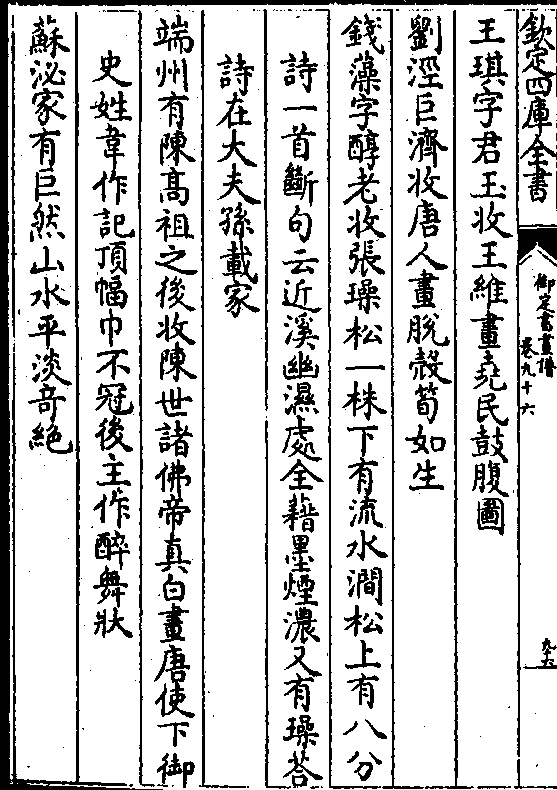 欽定四庫全書
御定書畫譜
卷九十六
九十六
王琪字君玉收王維畫堯民鼓腹圖
劉涇巨濟收唐人畫脫殻筍如生
錢藻字醇老收張璪松一株下有流水澗松上有八分
詩一首斷句云近溪幽濕處全藉墨煙濃又有璪荅
詩在大夫孫載家
端州有陳髙祖之後收陳世諸佛帝真白畫唐使下御
史姓韋作記頂幅巾不冠後主作醉舞狀
蘇泌家有巨然山水平淡竒絶